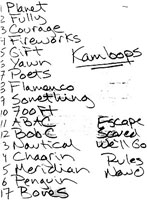 1 Planet
2 Fully
3 Courage
4 Fireworks
5 Gift
6 Yawn
7 Poets
8 Flamenco
9 Something
10 700 Ft
11 ABAC
12 Bob C
13 Nautical
4 Chagrin
5 Meridian
6 Penguin
17 Bones
Kamloops
Escape
Scared
We'll Go
Rules
Now